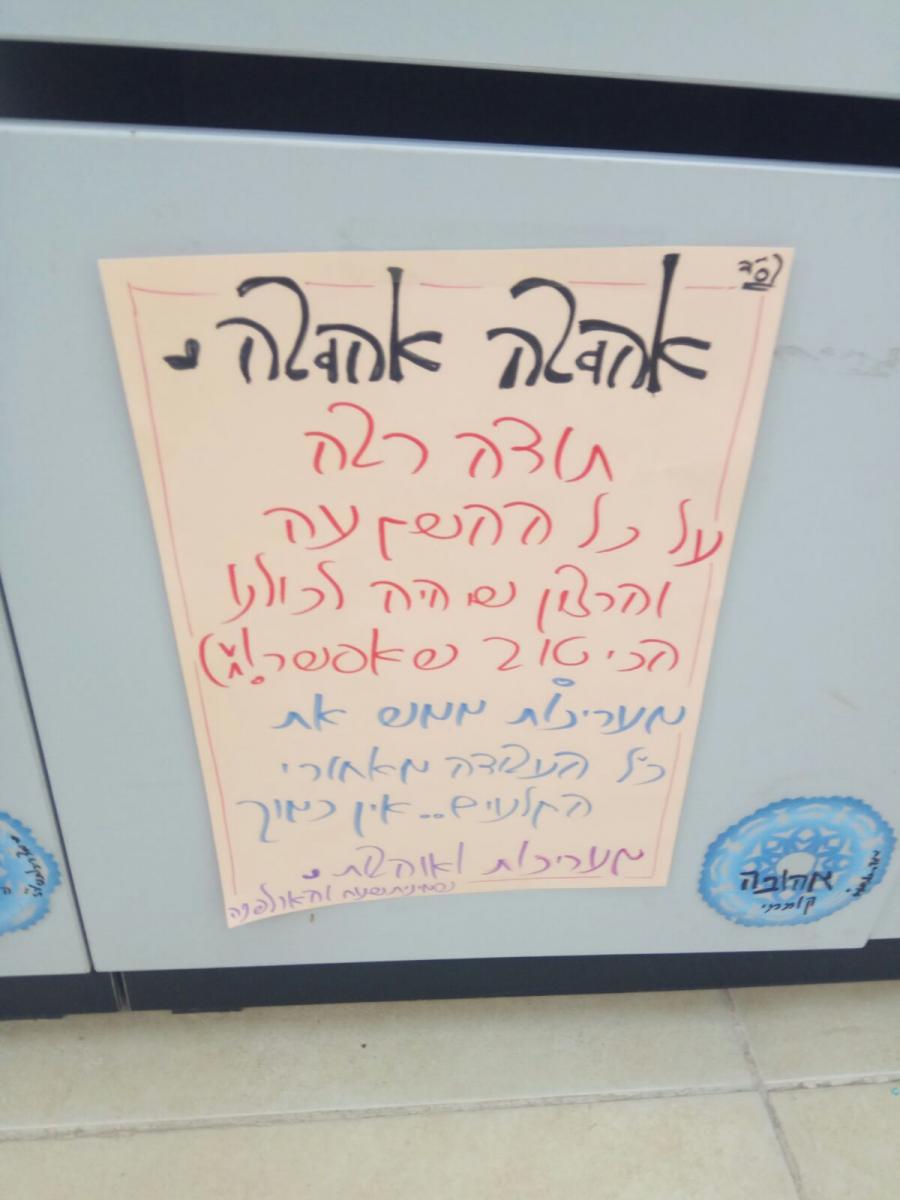 בס"ד
אהובה אהובה.
תודה רבה
על כל ההשקעה
והרצון שיהיה לכולנו
הכי טוב שאפשר!
מעריכות ממש את
כל העבודה מאחורי
הקלעים.. אין כמוך
מעריכות ואוהבות.
אהובה